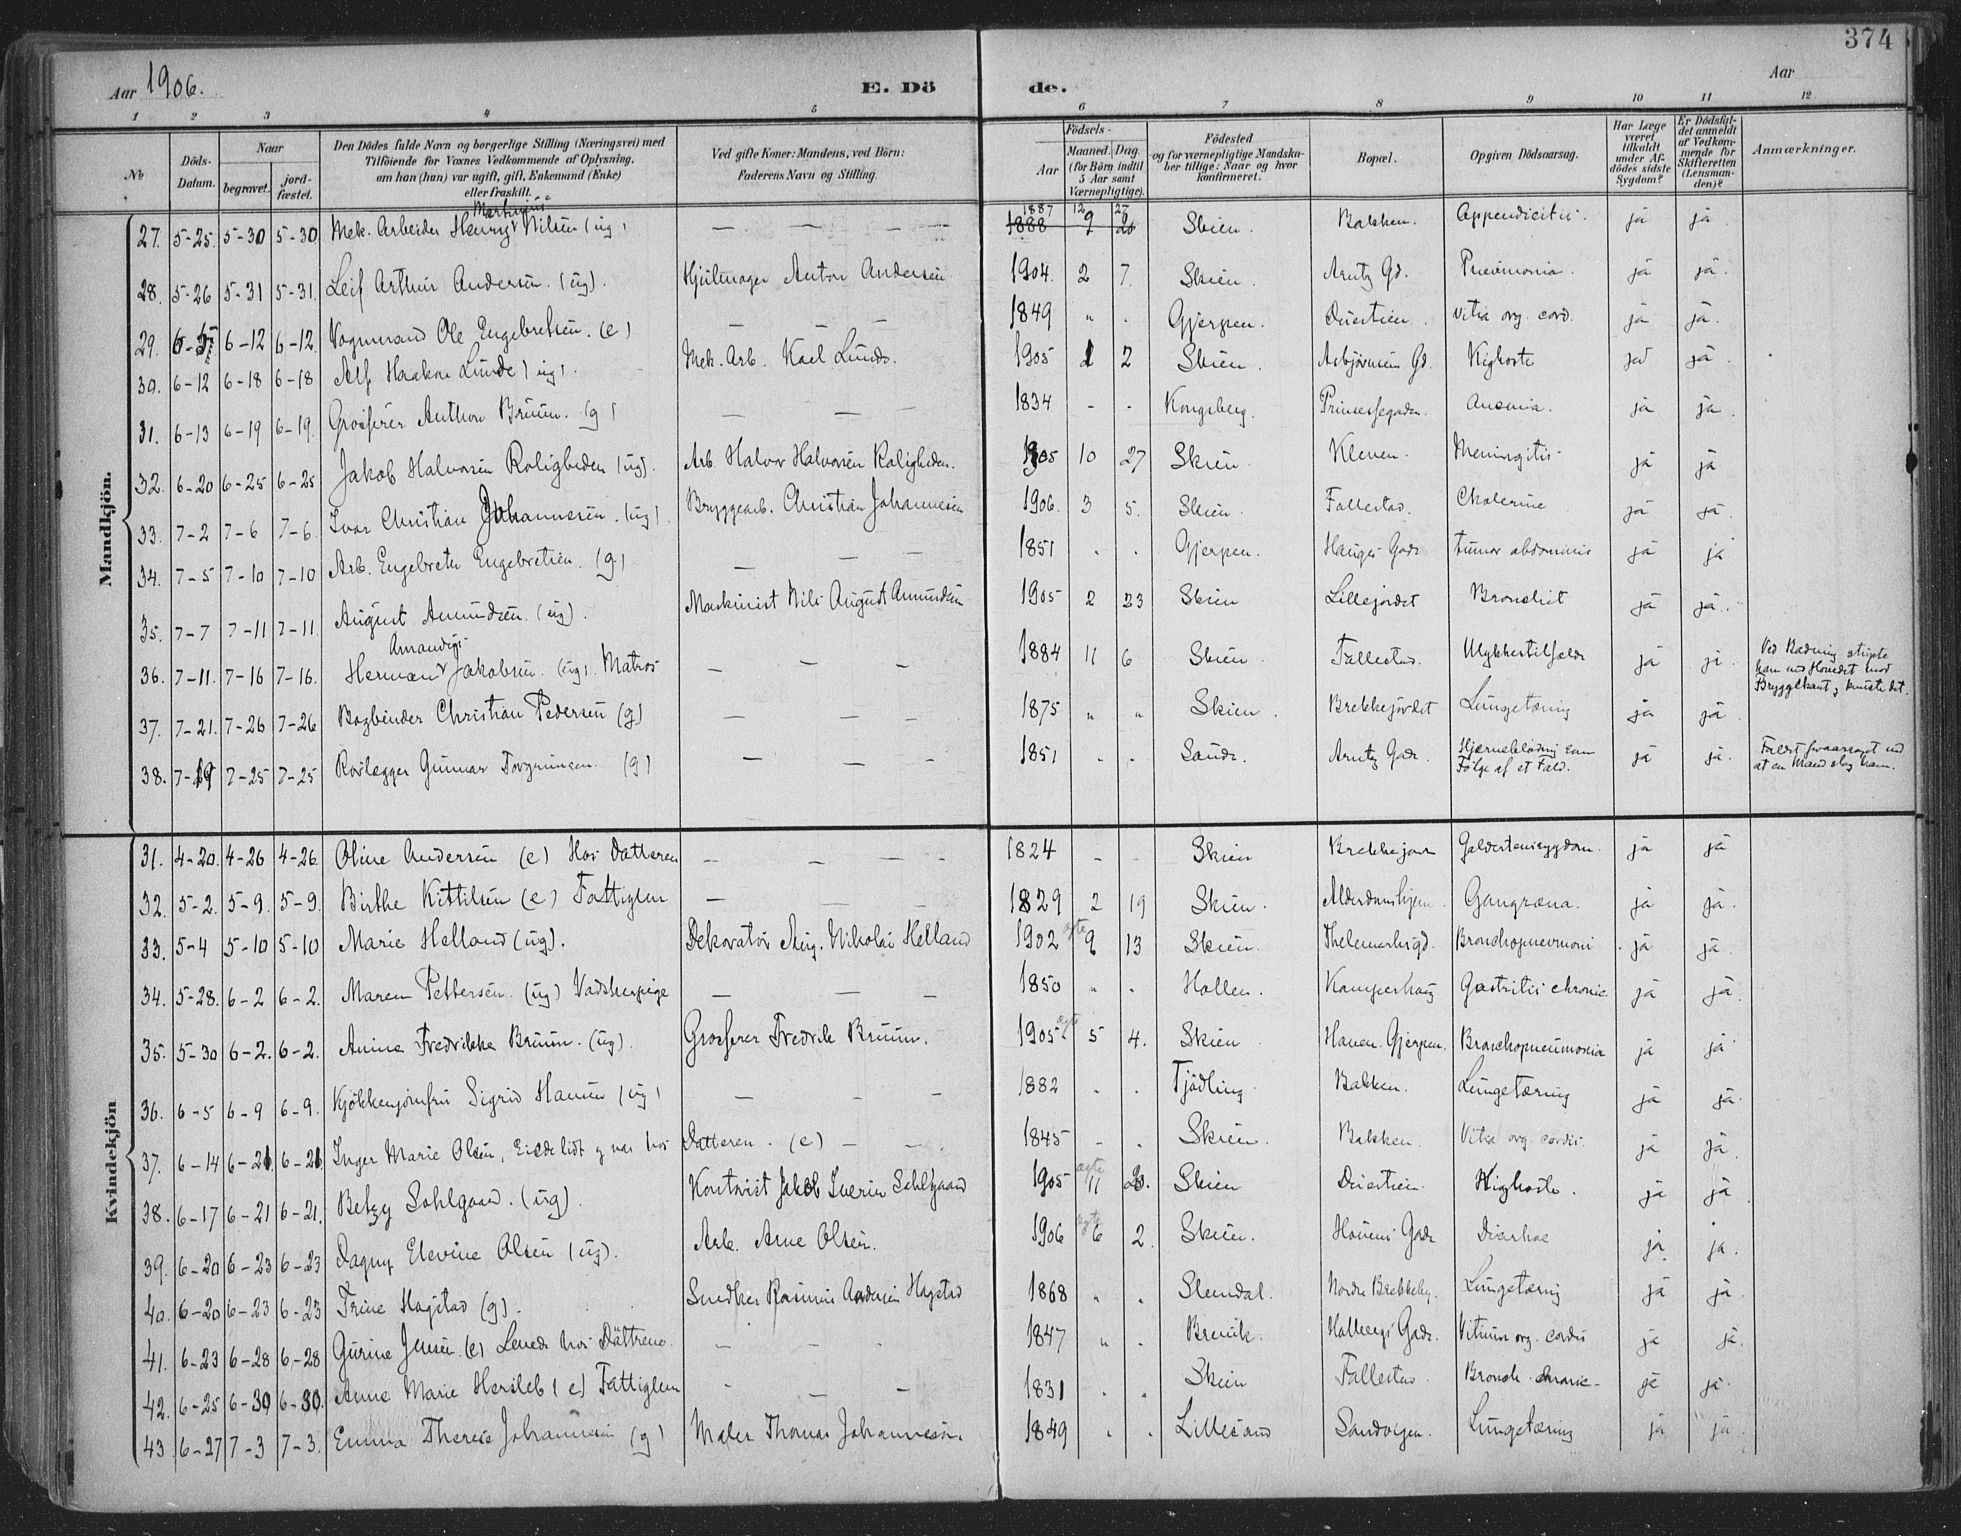 374
Aar 1906. E. Döde. Aar
1 2 3 4 5 6 7 8 9 10 11 12
No
Döds-Datum.
Naar
begravet. jordfæstet.
Den Dödes fulde Navn og borgerlige Stilling (Næringsvei) med Tilföiende for Voxnes Vedkommende af Oplysning, om han (hun) var ugift, gift, Enkemand (Enke) eller fraskilt.
Ved gifte Koner: Mandens, ved Börn: Faderens Navn og Stilling.
Födsels-
Aar
Maaned. Dag.
(for Börn indtil 5 Aar samt Værnepligtige).
Födested og for værnepligtige Mandskaber tillige: Naar og hvor konfirmeret.
Bopæl.
Opgiven Dödsaarsag.
Har Læge været tilkaldt under Afdödes sidste Sygdom?
Er Dödsfaldet anmeldt af Vedkommende for Skifteretten (Lensmanden)?
Anmærkninger.
Mandkjön.
27. 5-25. 5-30 5-30 Mek. Arbeider Henry Martinius Nilsen (ug) — — — — 1887 12 27 1888 2 20 Skien. Bakken. Appendicitis. ja ja.
28. 5-26 5-31 5-31. Leif Arthur Andersen. (ug). Hjulmager Anton Andersen 1904. 2 7. Skien. Arntz Gd. Pneumonia. ja ja.
29. 6-5 6-12 6-12. Vognmand Ole Engebretsen. (e) — — — 1849 " . Gjerpen. Duestien. Vitia org. cord. ja ja.
30. 6-12 6-18 6-18 Alf Haakon Lunde (ug). Mek. Arb. Karl Lunde. 1905 1 2 Skien. Asbjørnsens Gd. Kighoste ja ja.
31. 6-13 6-19 6-19. Grosserer Anthon Bruun. (g) — — — 1834 - . Kongsberg. Prinsessegaden. Anæmia. ja ja.
32. 6-20 6-25 6-25 Jakob Halvorsen Roligheden (ug). Arb. Halvor Halvorsen Roligheden. 1905 10 27 Skien. Kleven. Meningitis. ja ja
33. 7-2 7-6 7-6. Ivar Christian Johannesen. (ug). Bryggearb. Christian Johannesen 1906. 3 5. Skien. Fallestad. Cholerine ja ja.
34. 7-5 7-10 7-10 Arb. Engebreth Engebretsen. (g) — — — 1851 . . Gjerpen. Hauges Gade tumor abdominis ja ja
35. 7-7 7-11 7-11. August Amundsen. (ug). Maskinist Nils August Amundsen 1905 2 23 Skien Lillejordet Bronchit ja ja.
36. 7-11. 7-16 7-16. Herman Amandus Jakobsen. (ug). Matros — — — 1884 11 6 Skien. Fallestad. Ulykkestilfælde ja ja. Ved Badning stupte han med Hovedet mod Bryggekant og knuste det.
37. 7-21. 7-26 7-26 Bogbinder Christian Pedersen (g) — — — 1875 " " Skien. Brekkejordet Lungetæring ja ja.
38. 7-19 7-25 7-25 Rørlægger Gunnar Torgrimsen. (g) — — — 1851 . . Sande. Arntz Gade. Hjærneblödning som Fölge af et Fald. ja ja. Faldt foraarsaget ved at en Mand slog ham.
Kvindekjön
31. 4-20. 4-26 4-26. Oline Andersen (e) Hos Datteren — — — — 1824 - - Skien Brekkejord Galdestensygdom. ja ja
32. 5-2. 5-9. 5-9. Birthe Kittilsen (e) Fattiglem — — — 1829 2 19 Skien. Alderdomshjem. Gangræna. ja ja.
33. 5-4 5-10 5-10 Marie Helland (ug). Dekoratør Aug. Nikolai Helland 1902 ægte 9 13 Skien. Thelemarksgd. Bronchopneumoni ja ja.
34. 5-28. 6-2 6-2. Maren Pettersen. (ug) Vadskerpige — — — 1850 " . Hollen. Kamperhaug Gastritis chronic. ja ja.
35. 5-30 6-2. 6-2. Anine Fredrikke Bruun. (ug). Grosserer Fredrik Bruun. 1905. ægte 5 4. Skien Haven. Gjerpen. Bronchopneumonia ja ja
36. 6-5 6-9 6-9. Kjökkenjomfru Sigrid Hansen (ug) — — — 1882 . . Tjödling. Bakken. Lungetæring ja ja.
37. 6-14 6-21. 6-21. Inger Marie Olsen, Eiede lidt og var hos Datteren. (e) — — 1845 - . Skien. Bakken. Vitia org. cordis. ja ja.
38. 6-17 6-21 6-21. Betzy Sohlgaard. (ug). Kontorist Jakob Sverin Sohlgaard 1905 ægte 11 20. Skien Duestien. Kighoste. ja ja
39. 6-20 6-23 6-23 Dagny Elevine Olsen (ug). Arb. Arne Olsen. 1906 ægte 6 2. Skien. Houens Gade Diarhoe ja ja.
40. 6-20 6-23 6-23 Trine Hagstad (g). Snedker Rasmus Andersen Hagstad 1868 " . Slemdal. Nordre Brekkeby. Lungetæring ja ja.
41. 6-23 6-28 6-28 Gurine Jensen. (e) Levede hos Döttrene. — — — 1847 " . Brevik. Holbergs Gade. Vitium org. cordis ja ja.
42. 6-25 6-30 6-30. Anne Marie Hersleb (e) Fattiglem — — — 1831 . . Skien Fallestad Bronch. chronic. ja ja.
43. 6-27 7-3 7-3. Emma Therese Johannesen (g) Maler Thomas Johannesen. 1849 . . Lillesand Sandvigen. Lungetæring ja ja.